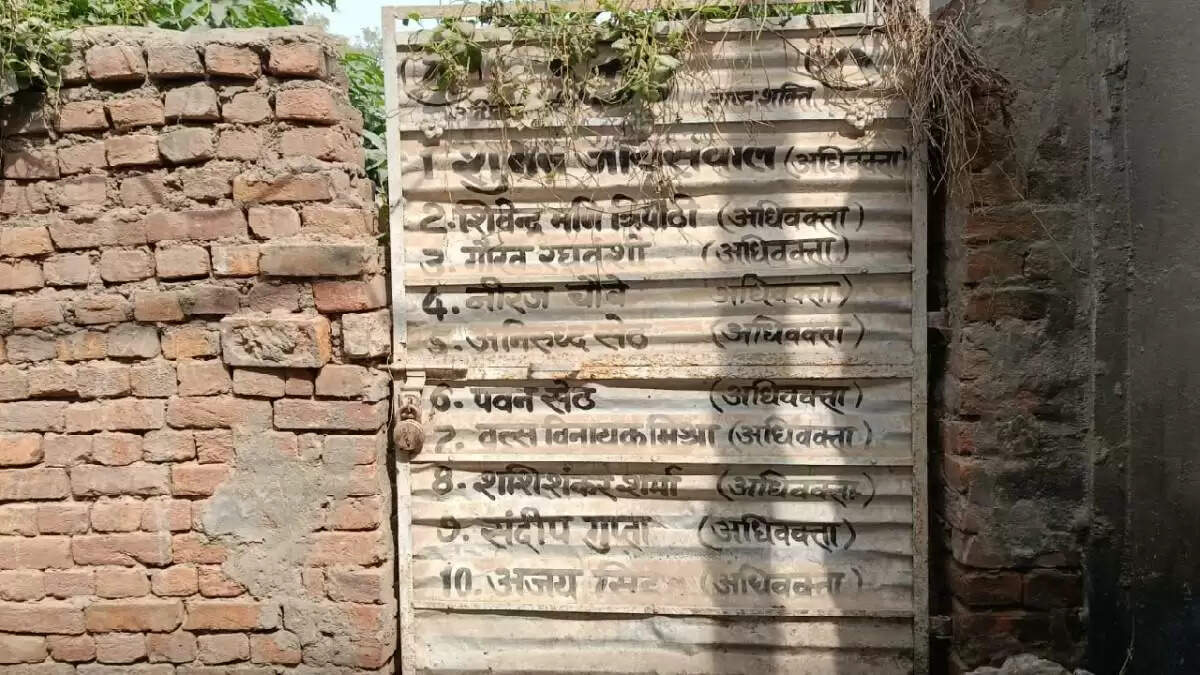 1 जायसवाल (अधिवक्ता)
2. शिवेन्द्र मणि त्रिपाठी (अधिवक्ता)
3. गौरव रघुवंशी (अधिवक्ता)
4. नीरज चौबे (अधिवक्ता)
5. अनिरुध्द सेठ (अधिवक्ता)
6. पवन सेठ (अधिवक्ता)
7. वत्स विनायक मिश्रा (अधिवक्ता)
8. शशिशंकर शर्मा (अधिवक्ता)
9. संदीप गुप्ता (अधिवक्ता)
10. अजय (अधिवक्ता)